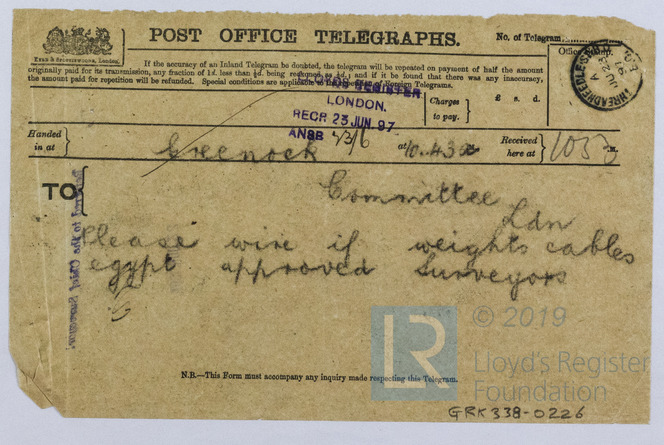 POST OFFICE TELEGRAPHS.
No. of Telegram
Office Stamp.
EYRE & SPOTTISWOODE, London.
If the accuracy of an Inland Telegram be doubted, the telegram will be repeated on payment of half the amount
originally paid for its transmission, any fraction of 1d. less than ½d. being reckoned as ½d.; and if it be found that there was any inaccuracy,
the amount paid for repetition will be refunded. Special conditions are applicable to the repetition of Foreign Telegrams.
LLOYDS REGISTER
LONDON.
RECP. 23 JUN. 97
ANSD 23/6
Charges
to pay.
£ s. d.
THREADNEEDLE ST
A
JU 23
97
Handed
in at
Greenock
at 10.43 a
Received
here at
1053
M.
TO
Committee
Ldn
Please wire if weights cables
egypt approved Surveyors
Referred to the Chief Surveyor.
N.B.—This Form must accompany any inquiry made respecting this Telegram.
LR
© 2019
Lloyd's Register
Foundation
GRK338-0226